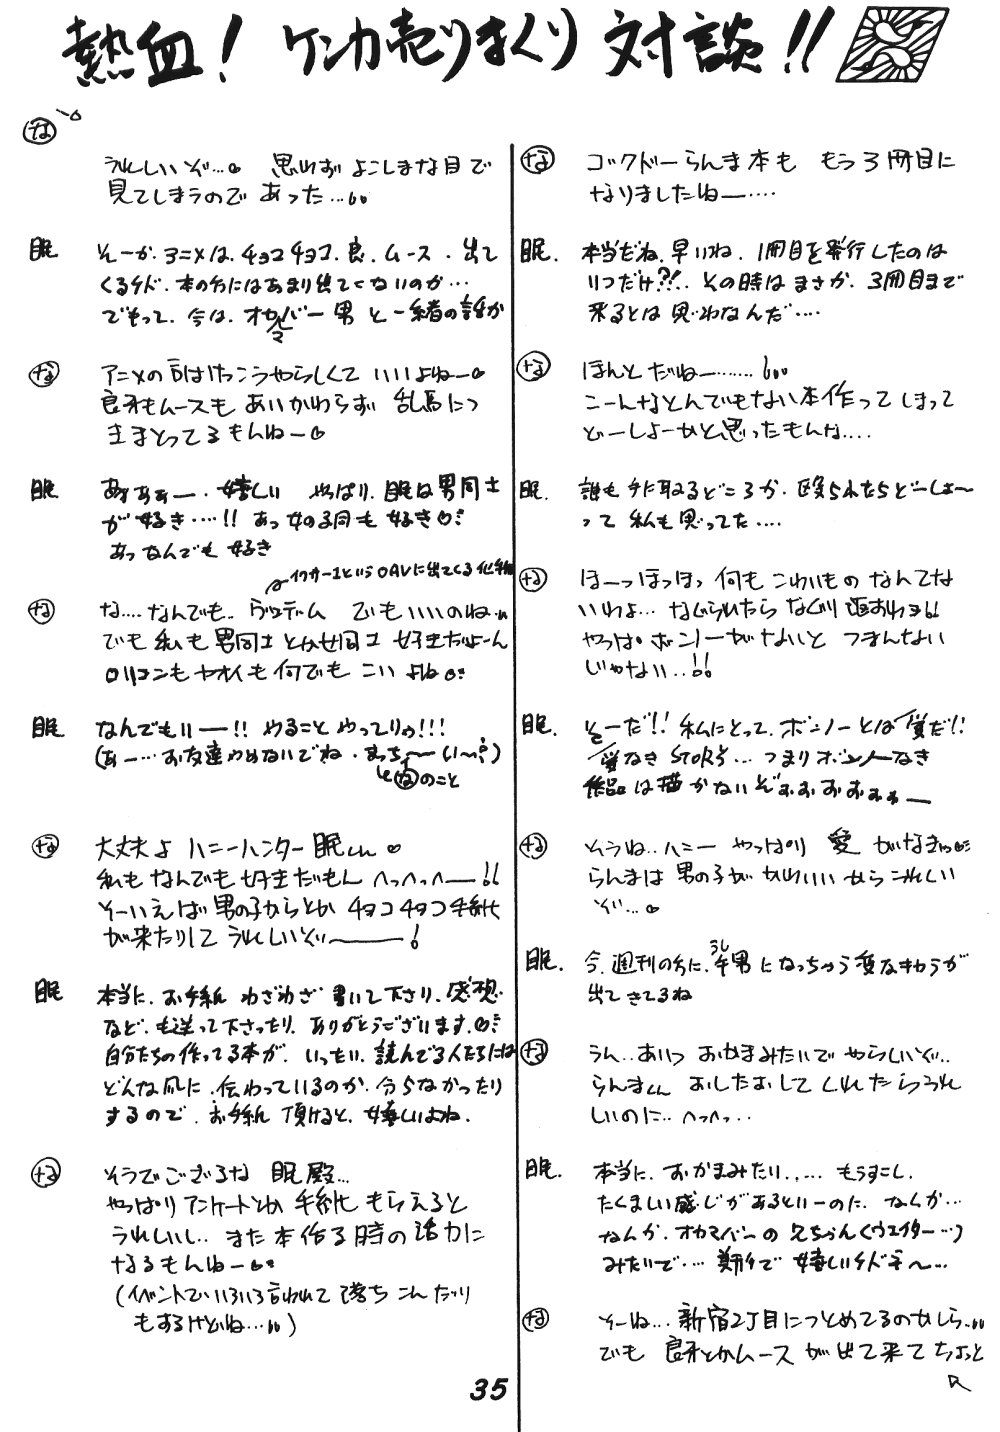 熱血! ケンカ売りまくり 対談!!
な
コックドーらんま本も もう3冊目に
なりましたねー‥‥
眠. 本当だね. 早いね. 1冊目を発行したのは
いつだけ?!. その時はまさか. 3冊目まで
来るとは 思わなんだ‥‥
な
ほんと だねー‥‥‥
こーんなとんでもない本作って しまって
どーしよーかと思ったもんな‥‥
眠. 誰も 手に取るどころか. 殴られたらどーしよ〜
って 私も思ってた‥‥
な
ほーっほっほっ 何も こわいもの なんてな
いわよ… なぐられたら なぐり返すわよ!!
やっぱ ボンノーがないと つまんない
じゃない‥!!
眠. そーだ!! 私にとって. ボンノーとは 愛だ!!
愛なき STORY… つまりボンノーなき
作品は描かないぞぉぉぉぉぉぉー
な
そうね‥ハニー やっぱり 愛 がなきゃ♡
らんまは 男の子が かわいい から うれしい
ぞ…♡
眠. 今. 週刊の方に. 牛男になっちゃう変なキャラが
うし
出てきてるね
な
うん‥あいつ おかまみたいで やらしいぞ‥
らんまくん おしたおして くれたらうれ
しいのに‥へっへっ‥
眠. 本当に. おかまみたい‥… もうすこし.
たくましい感じがあるといーのに. なんか…
なんか. オカマバーの 兄ちゃん(ウエイター…)
みたいで‥‥ 期待で 嬉しいけどネ〜…
な
そーね… 新宿2丁目につとめてるのかしら‥
でも 良牙とかムース が出て来て ちょっと
な
うれしいぞ…♡ 思わず よこしまな目で
見てしまうので あった…
眠 そーか. アニメは. チョコチョコ. 良. ムース. 出て
くるけど. 本の方にはあまり出てこないのか…
でもって. 今は. オカマバー男 と一緒の話か
な
アニメの方はけっこうやらしくて いいよねー♡
良牙もムースも あいかわらず 乱馬につ
きまとってるもんねー♡
眠 あぁぁぁー. 嬉しい やっぱり. 眠は男同士
が 好き‥‥!! あっ 女の子同士も 好き♡
あっ なんでも 好き
イクサー1というOAVに出てくる化物
な
な‥‥なんでも‥ ヴェデム でもいいのね
でも 私も 男同士とか女同士 好きだよーん
ロリコンもヤオイも何でも こい よね♡
眠 なんでもいーー!! やること やってりゃ!!!
(あー… お友達やめないでね. なっち〜〜い〜?)
なのこと
な
大丈夫よ ハニーハンター 眠くん♡
私もなんでも好きだもん へっへっへー!!
そーいえば 男の子からとか チョコチョコ 手紙
が来たりして うれしいぞーー!
眠 本当に. お手紙 わざわざ 書いて下さり. 感想
など. も送って下さったり. ありがとうございます.♡
自分たちの作ってる本が. いったい. 読んでる人たちには
どんな風に. 伝わっているのか. 分らなかったり
するので. お手紙 頂けると. 嬉しいよね.
な
そうでござるな 眠殿…
やっぱりアンケートとか 手紙 もらえると
うれしいし‥ また 本作る時の活力に
なるもんねー♡
(イベントでいろいろ言われて 落ちこんだり
もするけどね…)
35